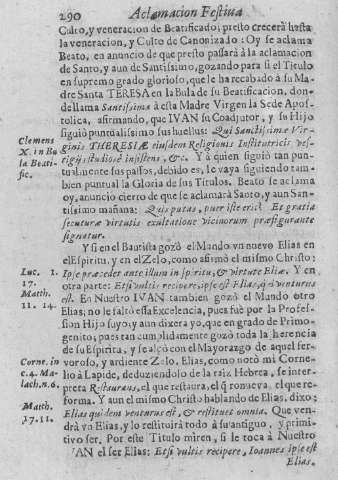 290 Aclamacion Festiva
Culto, y veneracion de Beatificado; presto crecerà hasta
la veneracion, y Culto de Canonizado: Oy se aclama
Beato, en anuncio de que presto passarà à la aclamacion
de Santo, y aun de Santissimo, gozando para si el Titulo
en supremo grado glorioso, que le ha recabado à su Ma-
dre Santa TERESA en la Bula de su Beatificacion, don-
de llama Santissima à esta Madre Virgen la Sede Apos-
tolica, afirmando, que IVAN su Coadjutor, y su Hijo
siguiò puntualissimo sus huellas: Qui Sanctissimæ Vir-
ginis THERESIÆ eiusdem Religionis Institutricis ves-
tigijs studiosè insistens, &c. Y à quien siguiò tan pun-
tualmente sus passos, debido es, le vaya siguiendo tam-
bien puntual la Gloria de sus Titulos. Beato se aclama
oy, anuncio cierto de que se aclamarà Santo, y aun San-
tissimo mañana: Quis putas, puer iste erit? Et gratia
secuturæ virtutis exultatione vicinorum præfigurante
signatur.
Clemens
X. in Bu
la Beati-
fic.
Y si en el Bautista gozò el Mando vn nuevo Elias en
el Espiritu, y en el Zelo, como afirmò el mismo Christo:
Ipse præcedet ante illum in spiritu, & virtute Eliæ. Y en
otra parte: Et si vultis recipere, ipse est Elias, qui venturus
est. En Nuestro IVAN tambien gozò el Mando otro
Elias; no le faltò essa Excelencia, pues fuè por la Profes-
sion Hijo suyo; y aun dixera yo, que en grado de Primo-
genito; pues tan cumplidamente gozò toda la herencia
de su Espiritu, y se alçò con el Mayorazgo de aquel fer-
voroso, y ardiente Zelo. Elias, como notò mi Corne-
lio à Lapide, deduziendolo de la raiz Hebrea, se inter-
preta Restaurans, el que restaura, el que renueva, el que re-
forma. Y aun el mismo Christo hablando de Elias, dixo:
Elias quidem venturus est, & restituet omnia. Que ven-
drà vn Elias, y lo restituirà todo à su antiguo, y primi-
tivo ser. Por este Titulo miren, si le toca à Nuestro
IVAN el ser Elias: Et si vultis recipere, Ioannes ipse est
Elias.
Luc. 1.
17.
Matth.
11. 14.
Corne. in
c. 4. Ma-
lach. n. 6.
Matth.
17. 11.